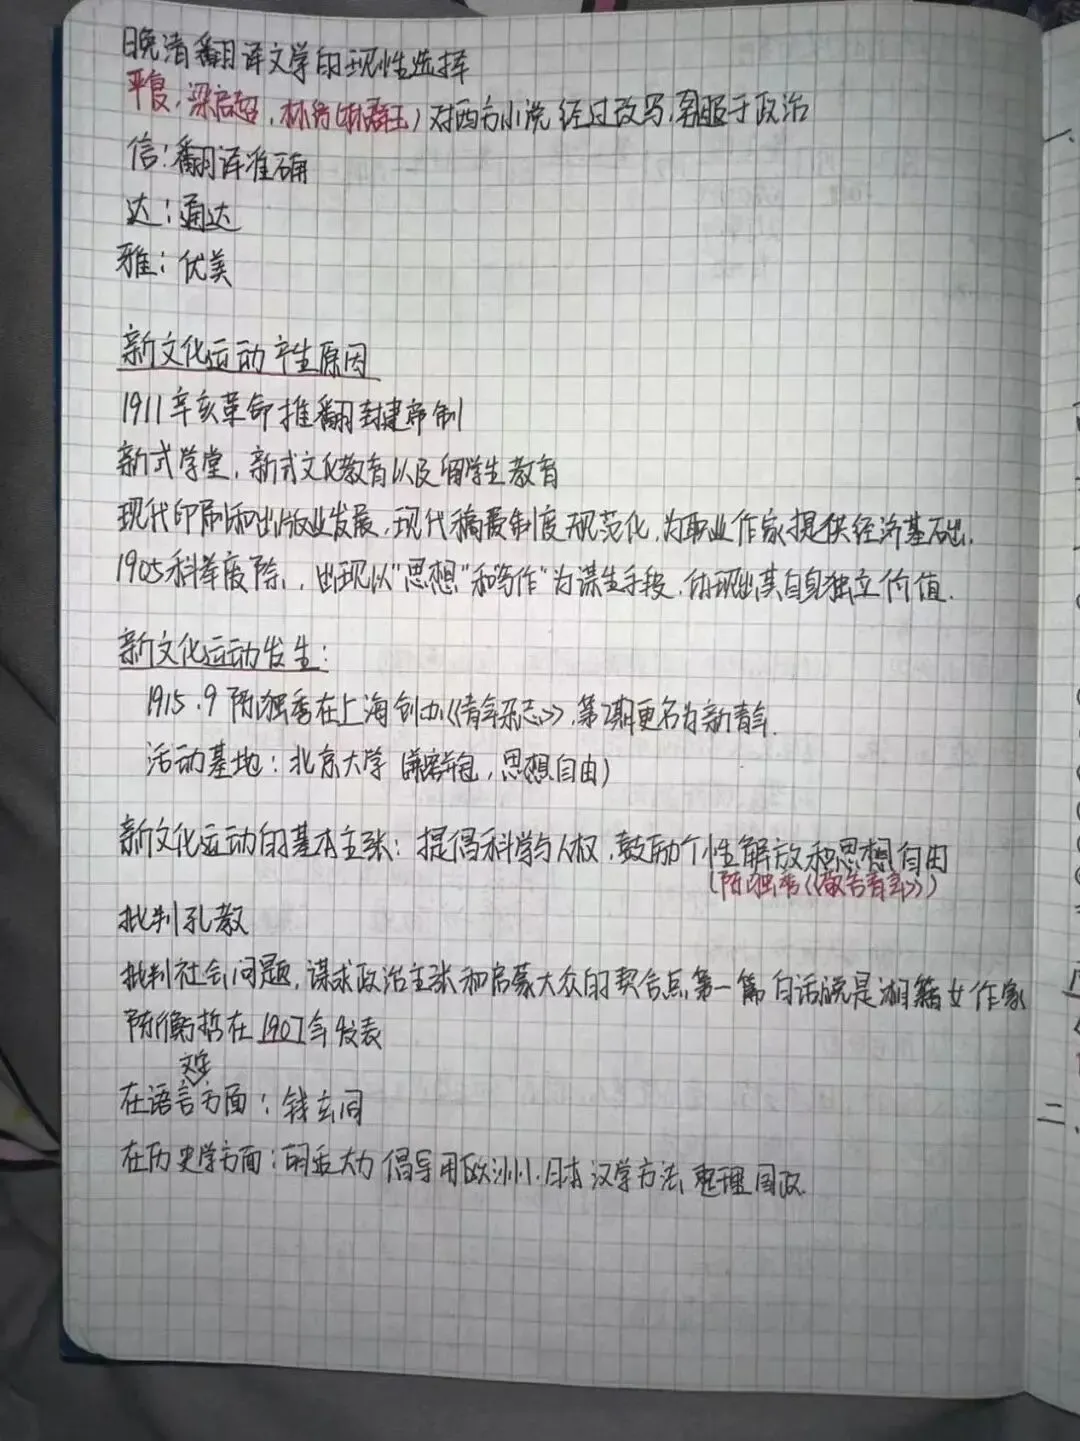 晚清翻译文学的现代性选择
严复，梁启超，林纾(林群玉)对西方小说经过改写,屈服于政治
信:翻译准确
达:通达
雅:优美
新文化运动产生原因
1911辛亥革命推翻封建帝制
新式学堂,新式文化教育以及留学生教育
现代印刷和出版业发展,现代稿费制度规范化,为职业作家提供经济基础.
1905科举废除,出现以"思想"和写作"为谋生手段,体现出其自身独立价值.
新文化运动发生:
1915.9陈独秀在上海创办《青年杂志》,第2期更名为新青年.
活动基地:北京大学(兼容并包,思想自由)
新文化运动的基本主张:提倡科学与人权,鼓励个性解放和思想自由
(陈独秀《敬告青年》)
批判孔教
批判社会问题,谋求政治主张和启蒙大众的契合点,第一篇白话说是湖籍女作家
陈衡哲在1907年发表
文字
在语言方面:钱玄同
在历史学方面:胡适大力倡导用欧洲.日本汉学方法整理国故.